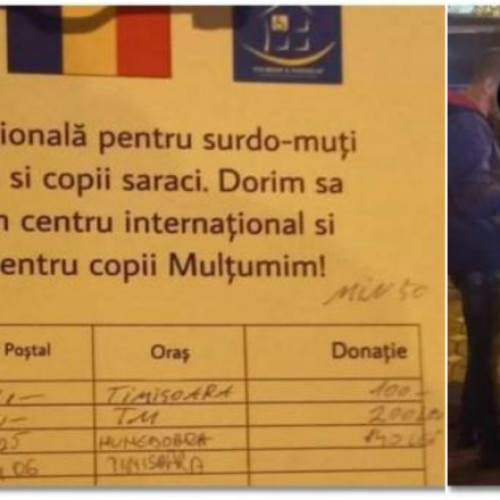 ională pentru surdo-muți
si copii saraci. Dorim sa
n centru internațional si
entru copii Mulțumim!
MIN 50
Poștal Oraș Donație
TIMIȘOARA 100-
TM 200
HUNEDOARA 140 LEI
06 TIMISOARA